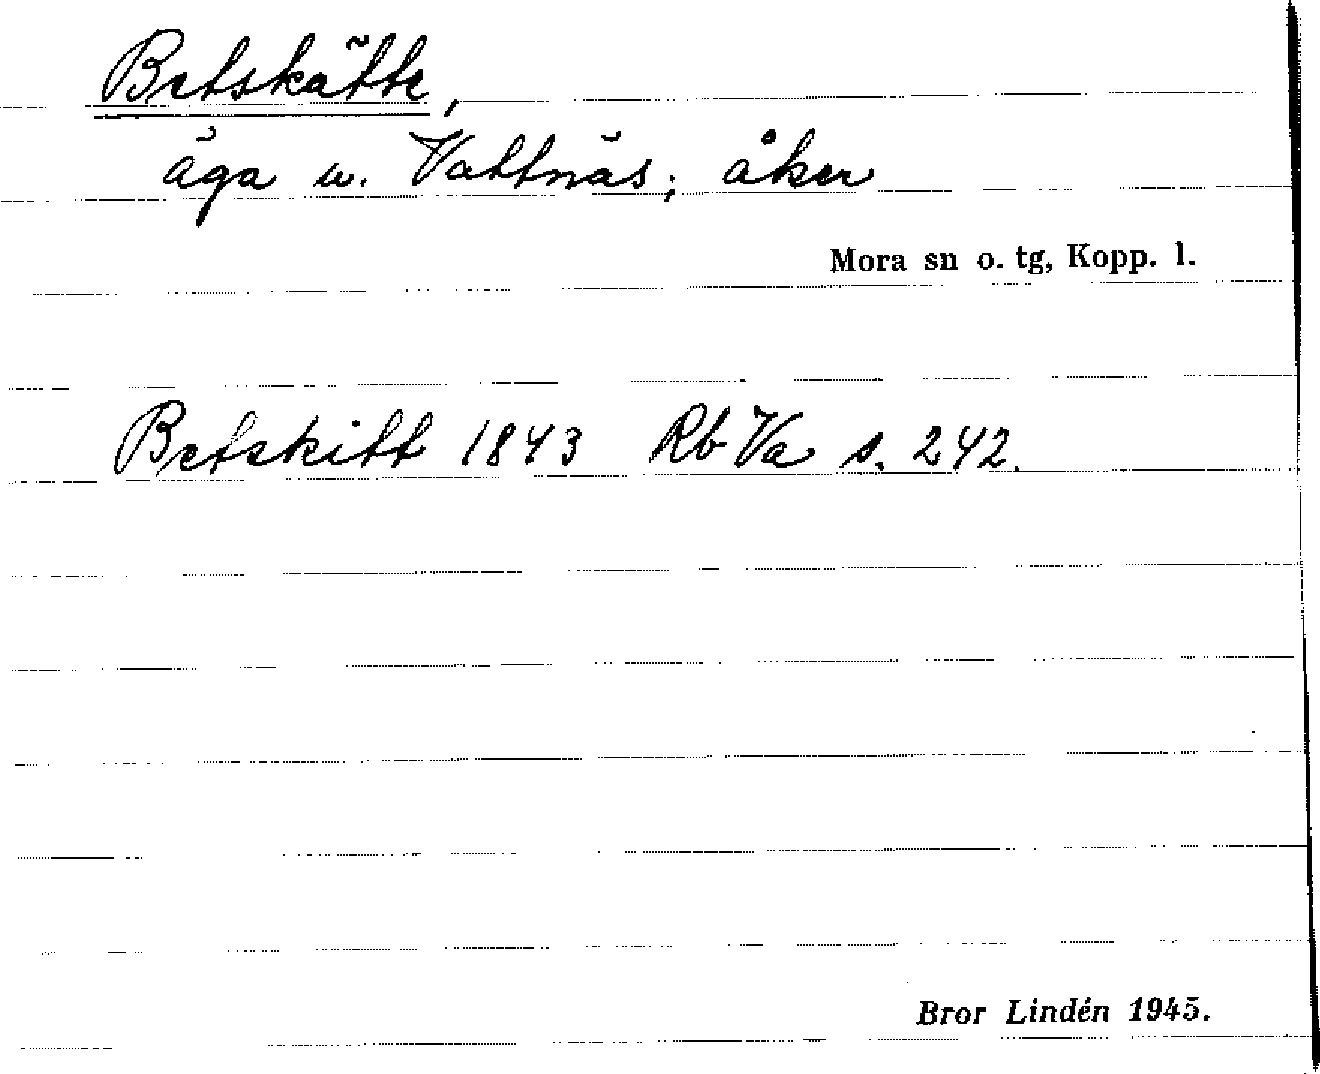 Betskätte,
äga u. Vattnäs; åker
Mora sn o. tg, Kopp. l.
Betskitt 1843 Rb Va s. 242.
Bror Lindén 1945.